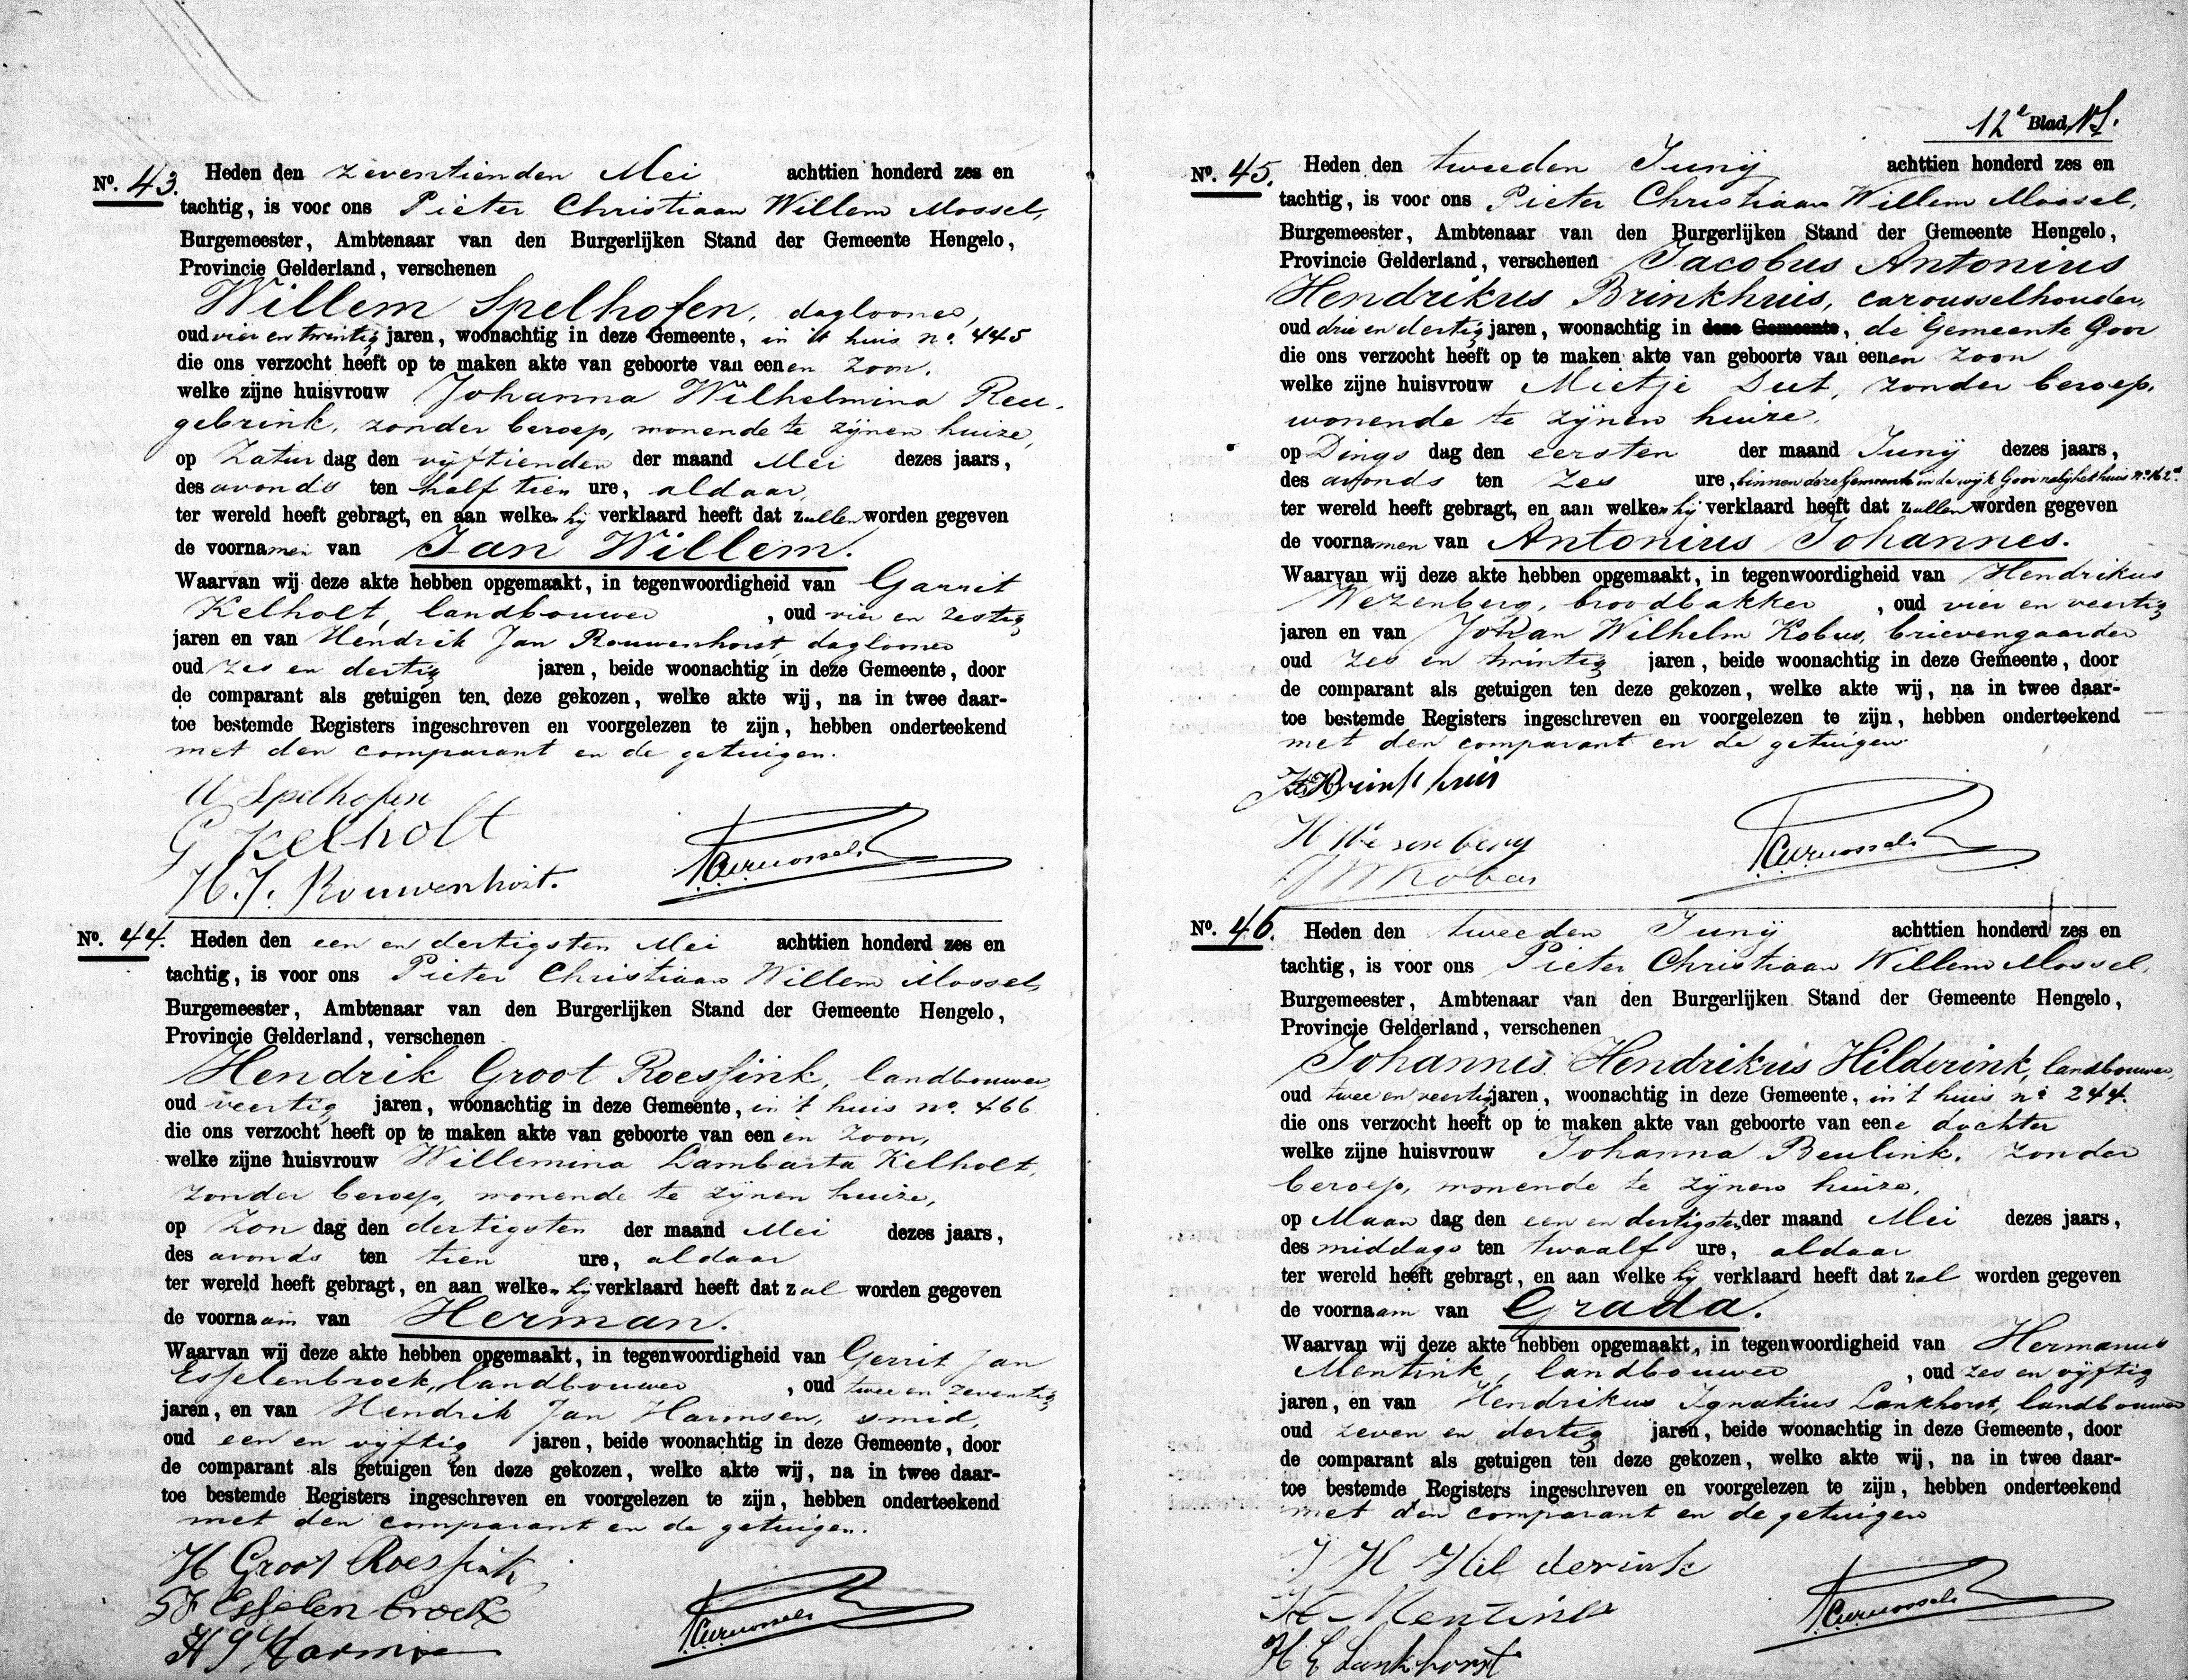 Nº. 43. Heden den zeventienden Mei achttien honderd zes en
tachtig, is voor ons Pieter Christiaan Willem Mossel,
Burgemeester, Ambtenaar van den Burgerlijken Stand der Gemeente Hengelo,
Provincie Gelderland, verschenen
Willem Spelhofen, daglooner,
oud vier en twintig jaren, woonachtig in deze Gemeente, in 't huis nº. 445
die ons verzocht heeft op te maken akte van geboorte van eenen zoon,
welke zijne huisvrouw Johanna Wilhelmina Reu-
gebrink, zonder beroep, wonende te zijnen huize,
op Zatur dag den vijftienden der maand Mei dezes jaars,
des avonds ten half tien ure, aldaar,
ter wereld heeft gebragt, en aan welken hij verklaard heeft dat zullen worden gegeven
de voornamen van Jan Willem.
Waarvan wij deze akte hebben opgemaakt, in tegenwoordigheid van Garrit
Kelholt, landbouwer, oud vier en zestig
jaren en van Hendrik Jan Rouwenhorst, daglooner
oud zes en dertig jaren, beide woonachtig in deze Gemeente, door
de comparant als getuigen ten deze gekozen, welke akte wij, na in twee daar-
toe bestemde Registers ingeschreven en voorgelezen te zijn, hebben onderteekend
met den comparant en de getuigen.
W Spelhofen
G Kelholt
H. J. Rouwenhorst.
Nº. 44. Heden den een en dertigsten Mei achttien honderd zes en
tachtig, is voor ons Pieter Christiaan Willem Mossel,
Burgemeester, Ambtenaar van den Burgerlijken Stand der Gemeente Hengelo,
Provincie Gelderland, verschenen
Hendrik Groot Roessink, landbouwer
oud veertig jaren, woonachtig in deze Gemeente, in 't huis nº. 466
die ons verzocht heeft op te maken akte van geboorte van eenen zoon,
welke zijne huisvrouw Willemina Lambarta Kelholt,
zonder beroep, wonende te zijnen huize,
op Zon dag den dertigsten der maand Mei dezes jaars,
des avonds ten tien ure, aldaar
ter wereld heeft gebragt, en aan welken hij verklaard heeft dat zal worden gegeven
de voornaam van Herman.
Waarvan wij deze akte hebben opgemaakt, in tegenwoordigheid van Gerrit Jan
Esselenbroek, landbouwer, oud twee en zeventig
jaren, en van Hendrik Jan Harmsen, smid,
oud een en vijftig jaren, beide woonachtig in deze Gemeente, door
de comparant als getuigen ten deze gekozen, welke akte wij, na in twee daar-
toe bestemde Registers ingeschreven en voorgelezen te zijn, hebben onderteekend
met den comparant en de getuigen.
H Groot Roessink
GJ Esselenbroek
H J Harmsen
12e Blad
Nº. 45. Heden den tweeden Junij achttien honderd zes en
tachtig, is voor ons Pieter Christiaan Willem Mossel,
Burgemeester, Ambtenaar van den Burgerlijken Stand der Gemeente Hengelo,
Provincie Gelderland, verschenen Jacobus Antonius
Hendrikus Brinkhuis, carousselhouder,
oud drie en dertig jaren, woonachtig in deze Gemeente, de Gemeente Goor
die ons verzocht heeft op te maken akte van geboorte van eenen zoon
welke zijne huisvrouw Mietje Dut, zonder beroep,
wonende te zijnen huize,
op Dings dag den eersten der maand Junij dezes jaars,
des avonds ten zes ure, binnen deze Gemeente in de wijk Goor nabij het huis nº. 162a.
ter wereld heeft gebragt, en aan welken hij verklaard heeft dat zullen worden gegeven
de voornamen van Antonius Johannes.
Waarvan wij deze akte hebben opgemaakt, in tegenwoordigheid van Hendrikus
Wezenberg, broodbakker, oud vier en veertig
jaren en van Johan Wilhelm Kobus, brievengaarder
oud zes en twintig jaren, beide woonachtig in deze Gemeente, door
de comparant als getuigen ten deze gekozen, welke akte wij, na in twee daar-
toe bestemde Registers ingeschreven en voorgelezen te zijn, hebben onderteekend
met den comparant en de getuigen
Brinkhuis
H Wesenberg
J W Kobus
Nº. 46. Heden den tweeden Junij achttien honderd zes en
tachtig, is voor ons Pieter Christiaan Willem Mossel,
Burgemeester, Ambtenaar van den Burgerlijken Stand der Gemeente Hengelo,
Provincie Gelderland, verschenen
Johannes Hendrikus Hilderink, landbouwer,
oud twee en veertig jaren, woonachtig in deze Gemeente, in 't huis nº 244.
die ons verzocht heeft op te maken akte van geboorte van eene dochter
welke zijne huisvrouw Johanna Beulink, zonder
beroep, wonende te zijnen huize,
op Maan dag den een en dertigsten der maand Mei dezes jaars,
des middags ten twaalf ure, aldaar
ter wereld heeft gebragt, en aan welke hij verklaard heeft dat zal worden gegeven
de voornaam van Grada.
Waarvan wij deze akte hebben opgemaakt, in tegenwoordigheid van Hermanus
Mentink, landbouwer, oud zes en vijftig
jaren, en van Hendrikus Ignatius Lankhorst, landbouwer
oud zeven en dertig jaren, beide woonachtig in deze Gemeente, door
de comparant als getuigen ten deze gekozen, welke akte wij, na in twee daar-
toe bestemde Registers ingeschreven en voorgelezen te zijn, hebben onderteekend
met den comparant en de getuigen
J H Hilderink
H Mentink
H E Lankhorst